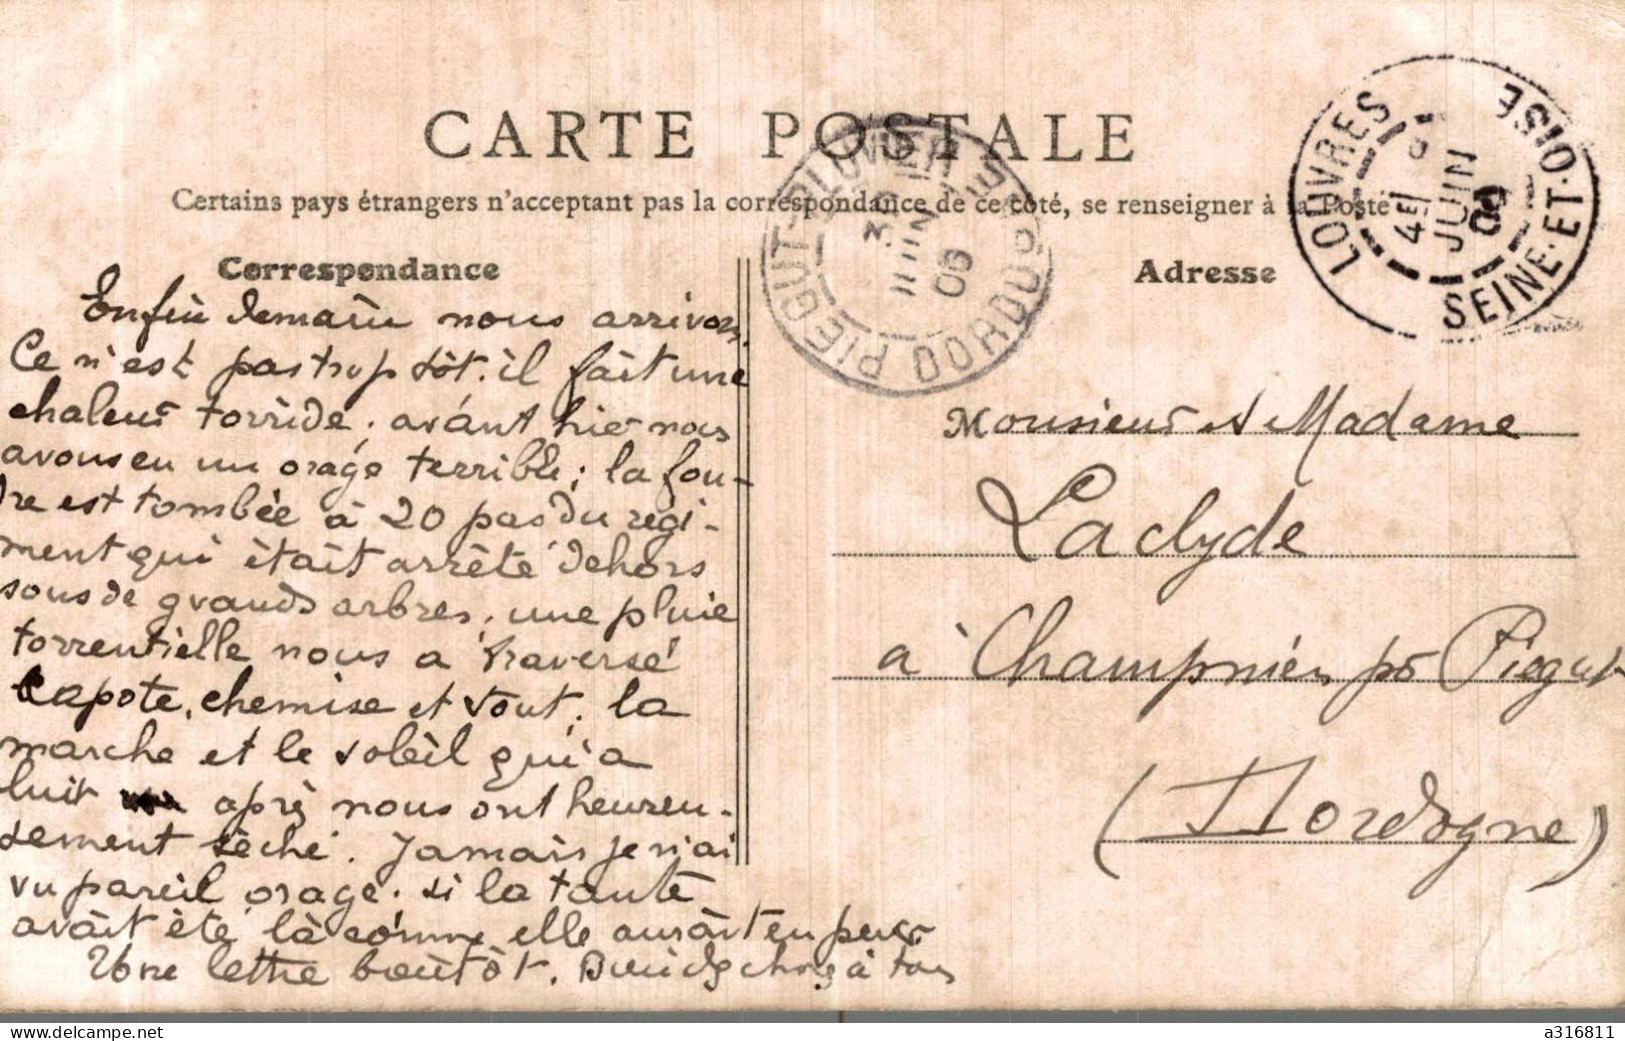 CARTE POSTALE
Certains pays étrangers n'acceptant pas la correspondance de ce côté, se renseigner à la Poste
Correspondance
Enfin demain nous arrivons.
Ce n'est pas trop tôt. il fait une
chaleur torride ; avant hier nous
avons eu un orage terrible ; la fou-
dre est tombée à 20 pas du régi-
ment qui était arrêté dehors
sous de grands arbres, une pluie
torrentielle nous a traversé
capote, chemise et tout ; la
marche et le soleil qui a
luit après nous ont heureu-
sement séché. Jamais je n'ai
vu pareil orage. si la tante
avait été là comme elle aurait eu peur
Une lettre bientôt. à tous
Adresse
Monsieur et Madame
Laclyde
à Champniers pr Piégut
(Dordogne)
PIEGUT-PLUVIERS
JUIN
09
DORDOGNE
LOUVRES
4E
JUIN
09
SEINE-ET-OISE
a316811